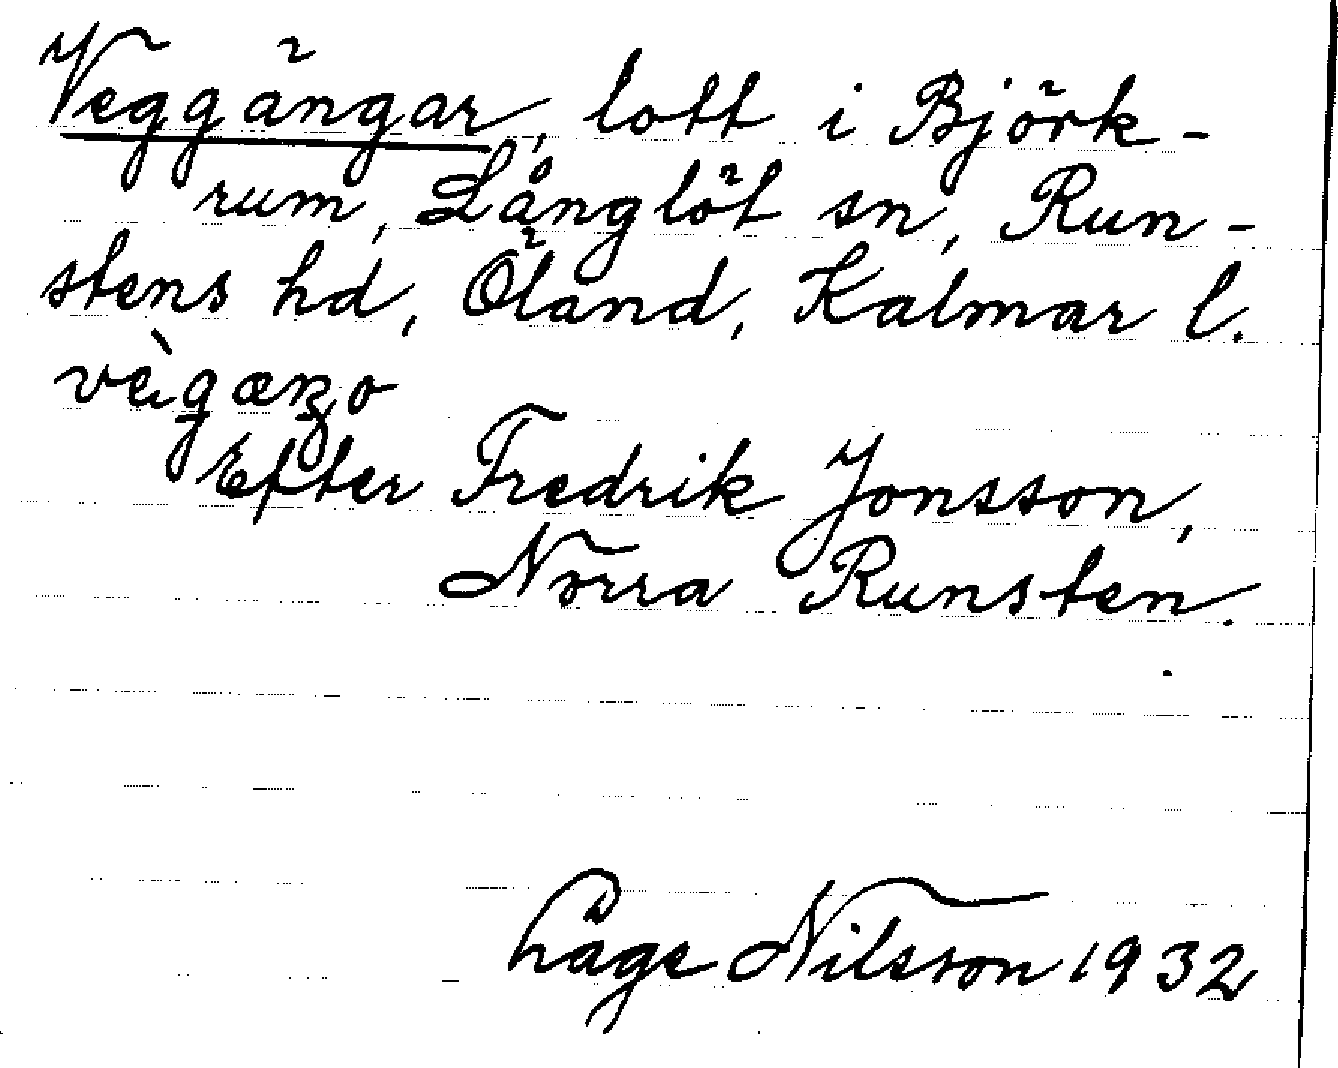 Veggängar, lott i Björk-
rum, Långlöt sn, Run-
stens hd, Öland, Kalmar l.
Efter Fredrik Jonsson,
Norra Runsten.
Åge Nilsson 1932